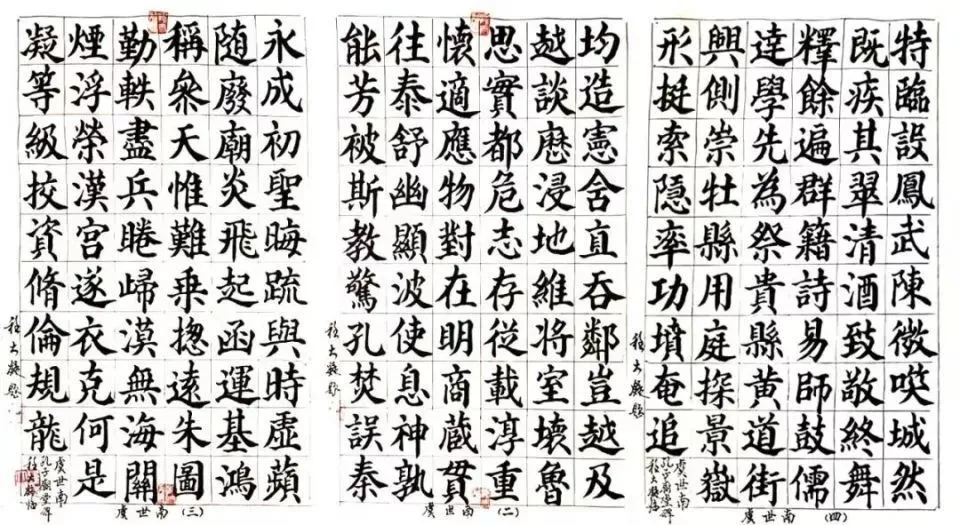 特臨設鳳武陳微喫城然
既疾其翠清酒致敬終舞
釋餘遍群籍詩易師鼓儒
達學先為祭貴縣黃道街
興側崇牡縣用庭探景嶽
形挺索隱率功墳奄追
虞世南
孔子廟堂碑
虞世南（四）
均造憲舍直吞鄰豈越及
越談歷浸地維將室壞魯
思實都危志存從載淳重
懷適應物對在明商蔵貫
往泰舒幽顯波使息神孰
能芳被斯教驚孔焚誤秦
虞世南（二）
永成初聖晦疏與時虛蘋
随廢廟炎飛起函運基鴻
稱眾天惟難乗揔遠朱圖
勤軼盡兵睠歸漠無海關
煙浮榮漢宮遂衣克何是
凝等級挍資脩倫規龍
虞世南
孔子廟堂碑
虞世南（三）